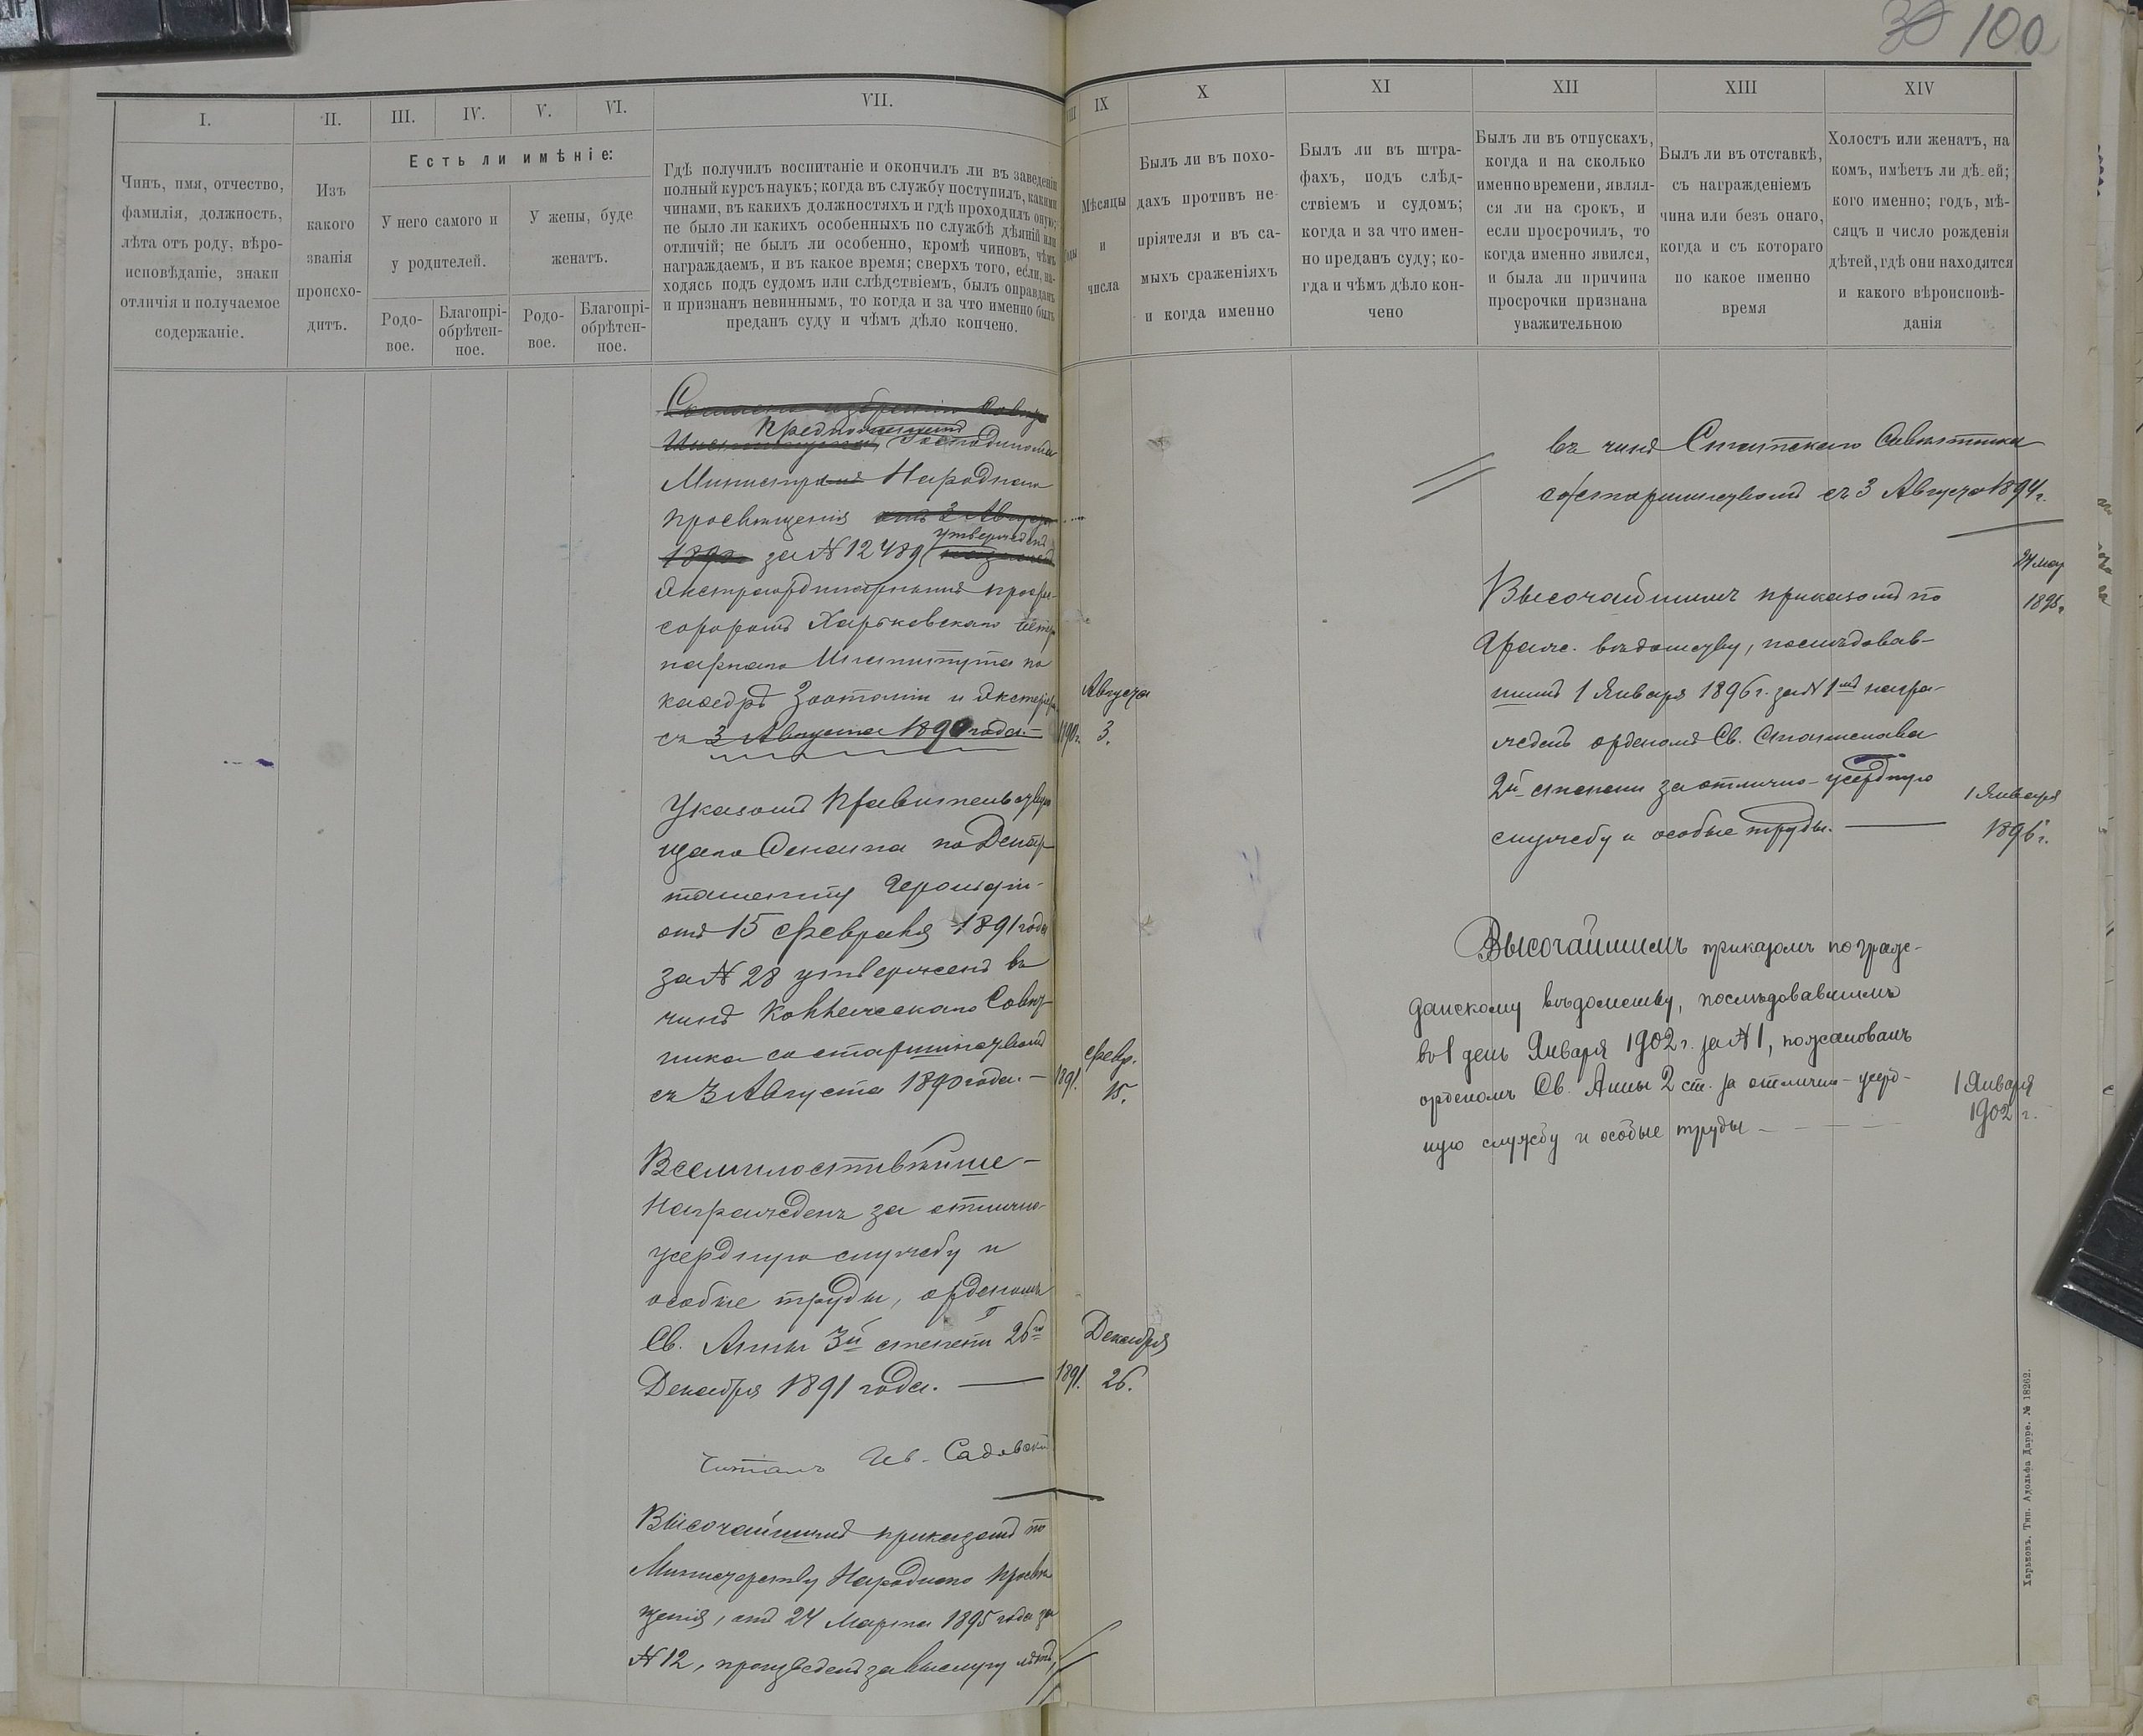 30 100
I.
II.
III.
IV.
V.
VI.
VII.
VIII
IX
X
XI
XII
XIII
XIV
Чинъ, имя, отчество,
фамилія, должность,
лѣта отъ роду, вѣро-
исповѣданіе, знаки
отличія и получаемое
содержаніе.
Изъ
какого
званія
происхо-
дитъ.
Есть ли имѣніе:
У него самого и
у родителей.
У жены, буде
женатъ.
Родо-
вое.
Благопрі-
обрѣтен-
ное.
Родо-
вое.
Благопрі-
обрѣтен-
ное.
Гдѣ получилъ воспитаніе и окончилъ ли въ заведеніи
полный курсъ наукъ; когда въ службу поступилъ, какими
чинами, въ какихъ должностяхъ и гдѣ проходилъ оную;
не было ли какихъ особенныхъ по службѣ дѣяній или
отличій; не былъ ли особенно, кромѣ чиновъ, чѣмъ
награждаемъ, и въ какое время; сверхъ того, если, на-
ходясь подъ судомъ или слѣдствіемъ, былъ оправданъ
и признанъ невиннымъ, то когда и за что именно былъ
преданъ суду и чѣмъ дѣло кончено.
Годы
Мѣсяцы
и
числа
Былъ ли въ похо-
дахъ противъ не-
пріятеля и въ са-
мыхъ сраженіяхъ
и когда именно
Былъ ли въ штра-
фахъ, подъ слѣд-
ствіемъ и судомъ;
когда и за что имен-
но преданъ суду; ко-
гда и чѣмъ дѣло кон-
чено
Былъ ли въ отпускахъ,
когда и на сколько
именно времени, являл-
ся ли на срокъ, и
если просрочилъ, то
когда именно явился,
и была ли причина
просрочки признана
уважительною
Былъ ли въ отставкѣ,
съ награжденіемъ
чина или безъ онаго,
когда и съ котораго
по какое именно
время
Холостъ или женатъ, на
комъ, имѣетъ ли дѣтей;
кого именно; годъ, мѣ-
сяцъ и число рожденія
дѣтей, гдѣ они находятся
и какого вѣроисповѣ-
данія
Согласно избранію Совѣта
Института, Господиномъ
Министромъ Народнаго
просвѣщенія отъ 3 Августа
утвержденъ
1890 за № 12489
Экстраординарнымъ профес-
соромъ Харьковскаго Ветери-
нарнаго Института по
каѳедрѣ Зоотоміи и Экстерьера
съ 3 Августа 1890 года.—
1890г.
Августа
3.
Указомъ Правительствую-
щаго Сената по Депар-
таменту Герольдіи
отъ 15 февраля 1891 года
за № 28 утвержденъ въ
чинѣ Коллежскаго Совѣт-
ника со старшинствомъ
съ 3 Августа 1890 года.—
1891.
Февр.
15.
Всемилостивѣйше
Награжденъ за отлично-
усердную службу и
особые труды, орденомъ
Св. Анны 3й степени 26го
Декабря 1891 года.—
1891.
Декабря
26.
Читалъ Ив. Садовскій
Высочайшимъ приказомъ по
Министерству Народнаго Просвѣ
щенія, отъ 24 Марта 1895 года за
№ 12, произведенъ за выслугу лѣтъ,
въ чинъ Статскаго Совѣтника
со старшинствомъ съ 3 Августа 1894 г.
24 мар
1895г.
Высочайшимъ приказомъ по
Гражс. вѣдомству, послѣдовав-
шимъ 1 Января 1896 г. за № 1мъ награ-
жденъ орденомъ Св. Станислава
2й степени за отлично-усердную
службу и особые труды.—
1 Января
1896г.
Высочайшимъ приказомъ по граж-
данскому вѣдомству, послѣдовавшимъ
во 1 день Января 1902 г. за № 1, пожалованъ
орденомъ Св. Анны 2 ст. за отлично-усерд-
ную службу и особые труды
1 Января
1902 г.
Харьковъ. Тип. Адольфа Дарре. № 18262.